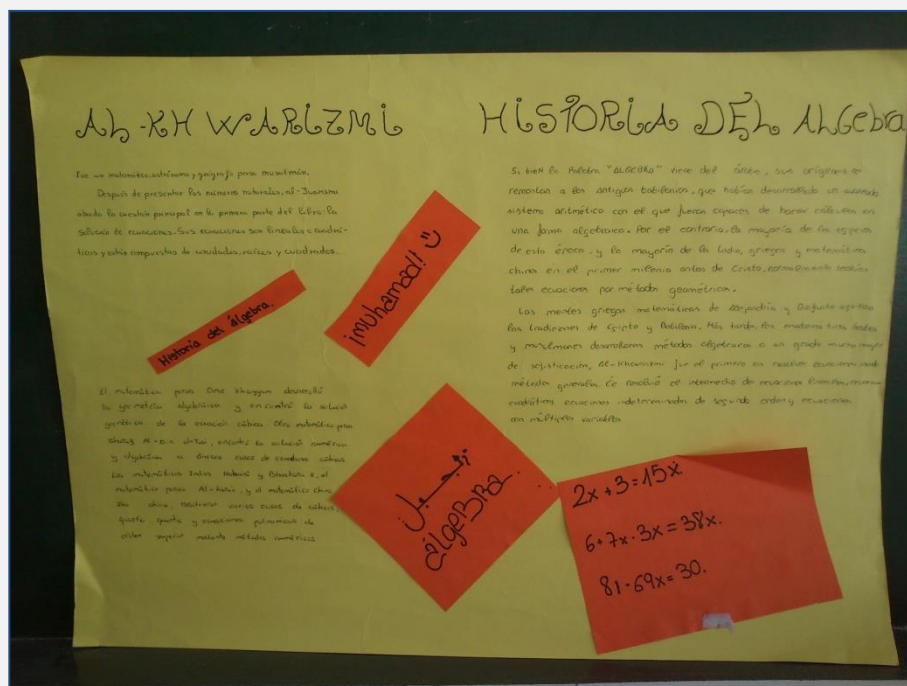 AL-KHWARIZMI
Fue un matemático, astrónomo y geógrafo persa musulmán.
Después de presentar los números naturales, al-Juarismi
aborda la cuestión principal en la primera parte del libro: la
solución de ecuaciones. Sus ecuaciones son lineales o cuadrá-
ticas y están compuestas de unidades, raíces y cuadrados.
Historia del álgebra.
¡MUhamad!! :)
El matemático persa Omar Khayyam desarrolló
la geometría algebraica y encontró la solución
geométrica de la ecuación cúbica. Otro matemático persa
Al-Din encontró la solución numérica
y algebraica a diversos casos de ecuaciones cúbicas
Los matemáticos Indios y Bhaskara II, el
matemático persa Al- y el matemático chino
resolvieron varios casos de cúbicas,
y ecuaciones polinómicas de
orden superior métodos numéricos
HISTORIA DEL ALGebra
Si bien la Palabra "ALGEBRA" viene del árabe, sus orígenes se
remontan a los antiguos babilonios, que habían desarrollado un avanzado
sistema aritmético con el que fueron capaces de hacer cálculos en
una forma algebraica. Por el contrario, la mayoría de los egipcios
de esta época, y la mayoría de la India, griegos y matemáticos
chinos en el primer milenio antes de Cristo, normalmente
tales ecuaciones por métodos geométricos.
Las mentes griegas matemáticas de Alejandría y Diofanto
las tradiciones de Egipto y Babilonia. Más tarde, los matemáticos árabes
y musulmanes desarrollaron métodos algebraicos a un grado mucho mayor
de sofisticación, Al-Khowarizmi fue el primero en resolver ecuaciones
métodos generales. Él resolvió el de ecuaciones lineales,
cuadráticas ecuaciones indeterminadas de segundo orden y ecuaciones
con múltiples variables
álgeBRA
2x+3=15x
6+7x·3x=38x.
81·69x=30.